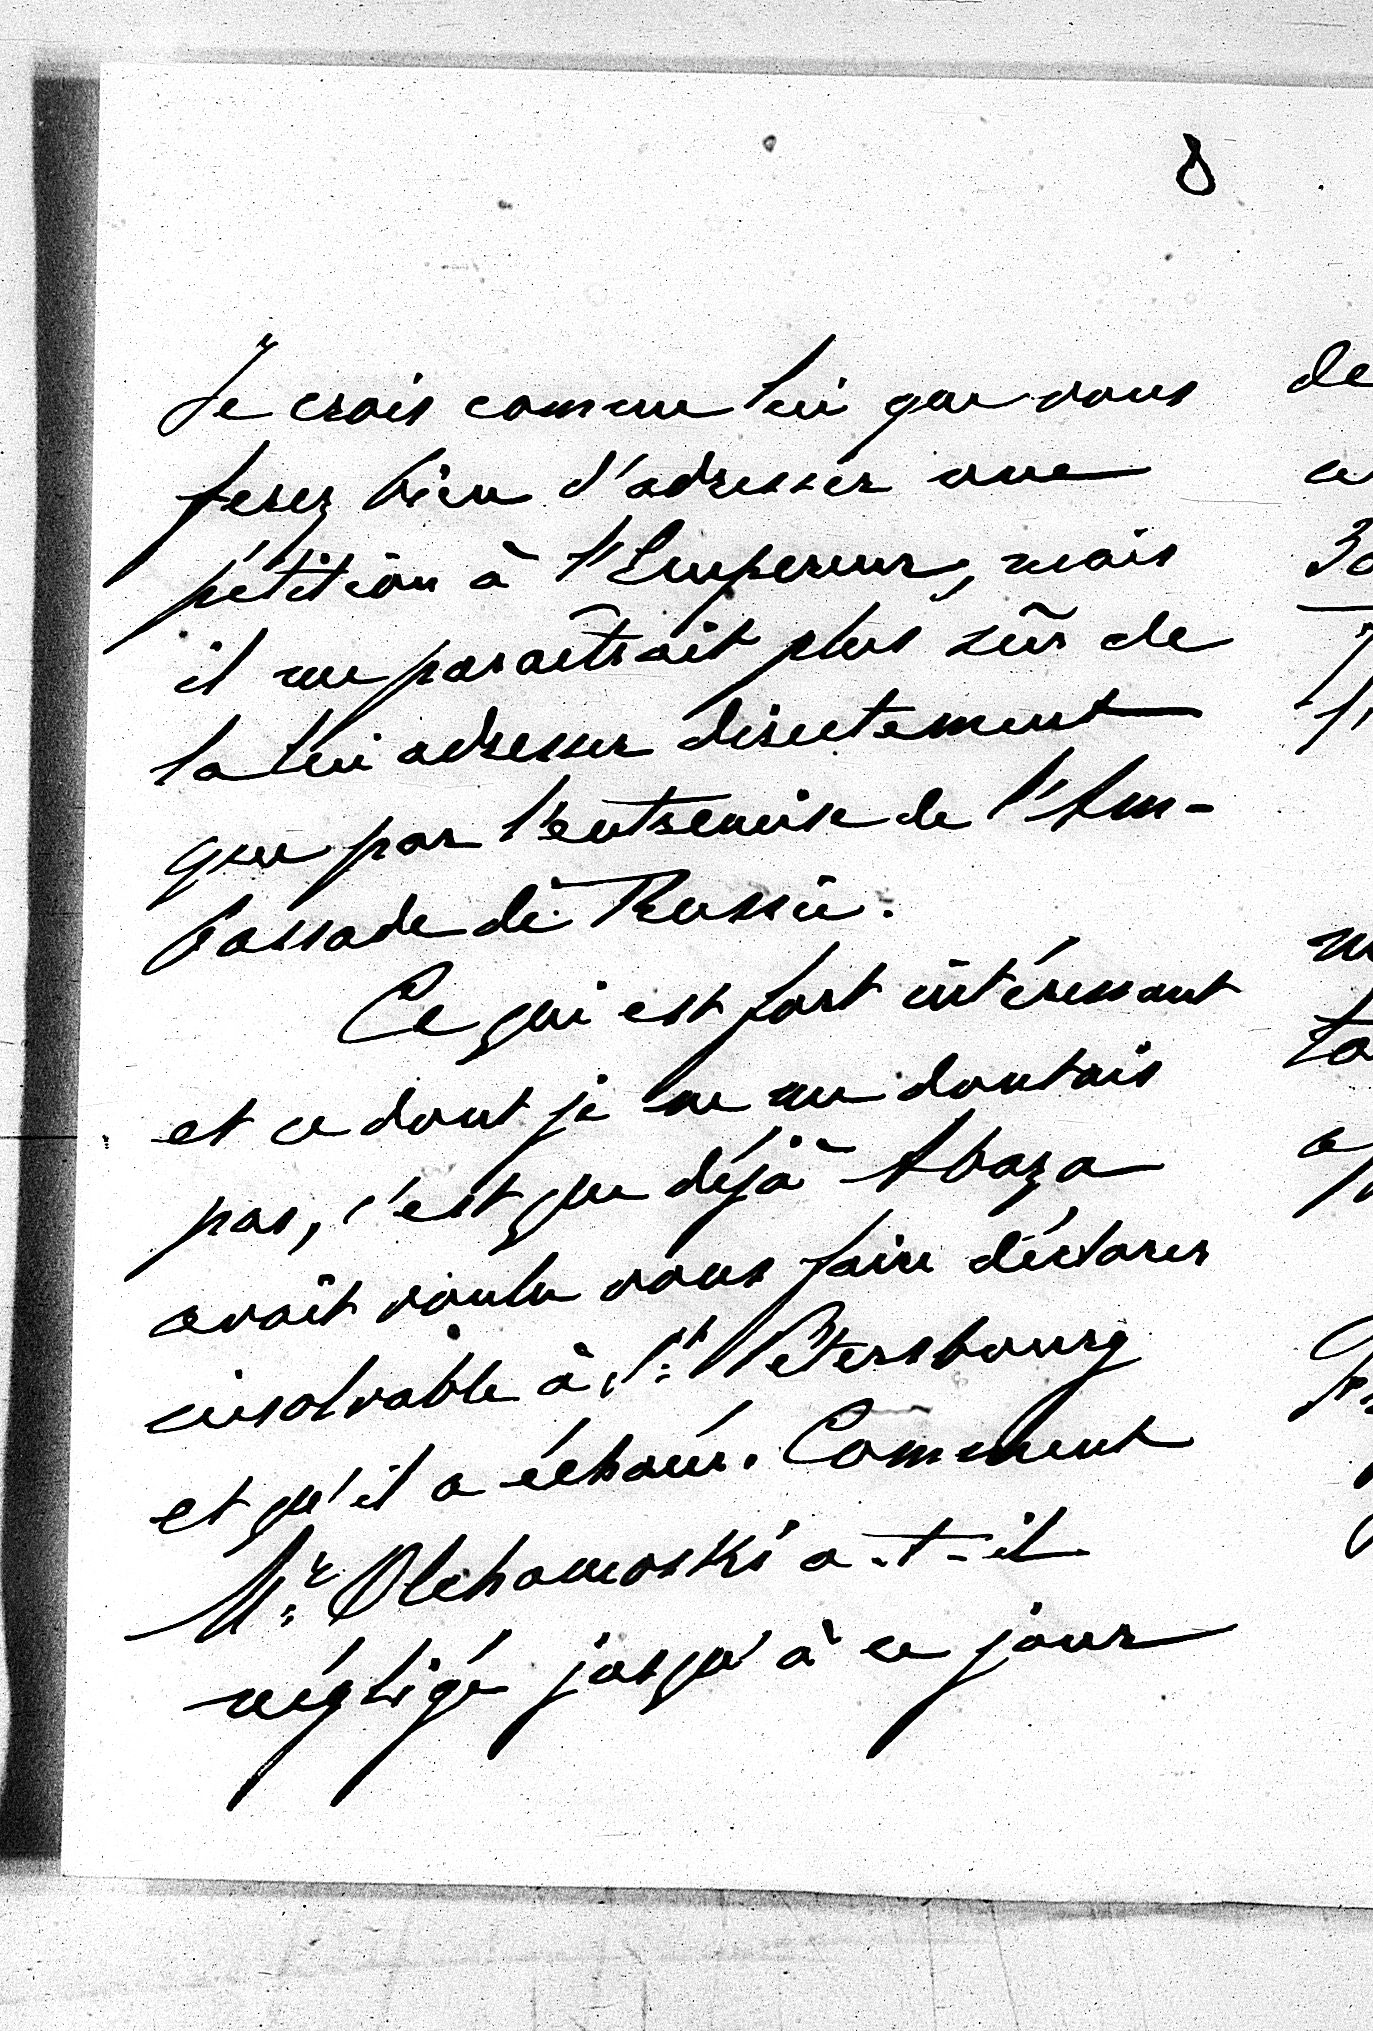 8
Je crois comme lui que vous
ferez bien d'adresser une
pétition à l'Empereur, mais
il me paraîtrait plus sûr de
la lui adresser directement
que par l'entremise de l'Am-
bassade de Russie.
Ce qui est fort intéressant
et ce dont je ne me doutais
pas, c'est que déjà Abaza
avait voulu vous faire déclarer
insolvable à St. Pétersbourg
et qu'il a échoué. Comment
Mr. Olchamoski a-t-il
négligé jusqu'à ce jour